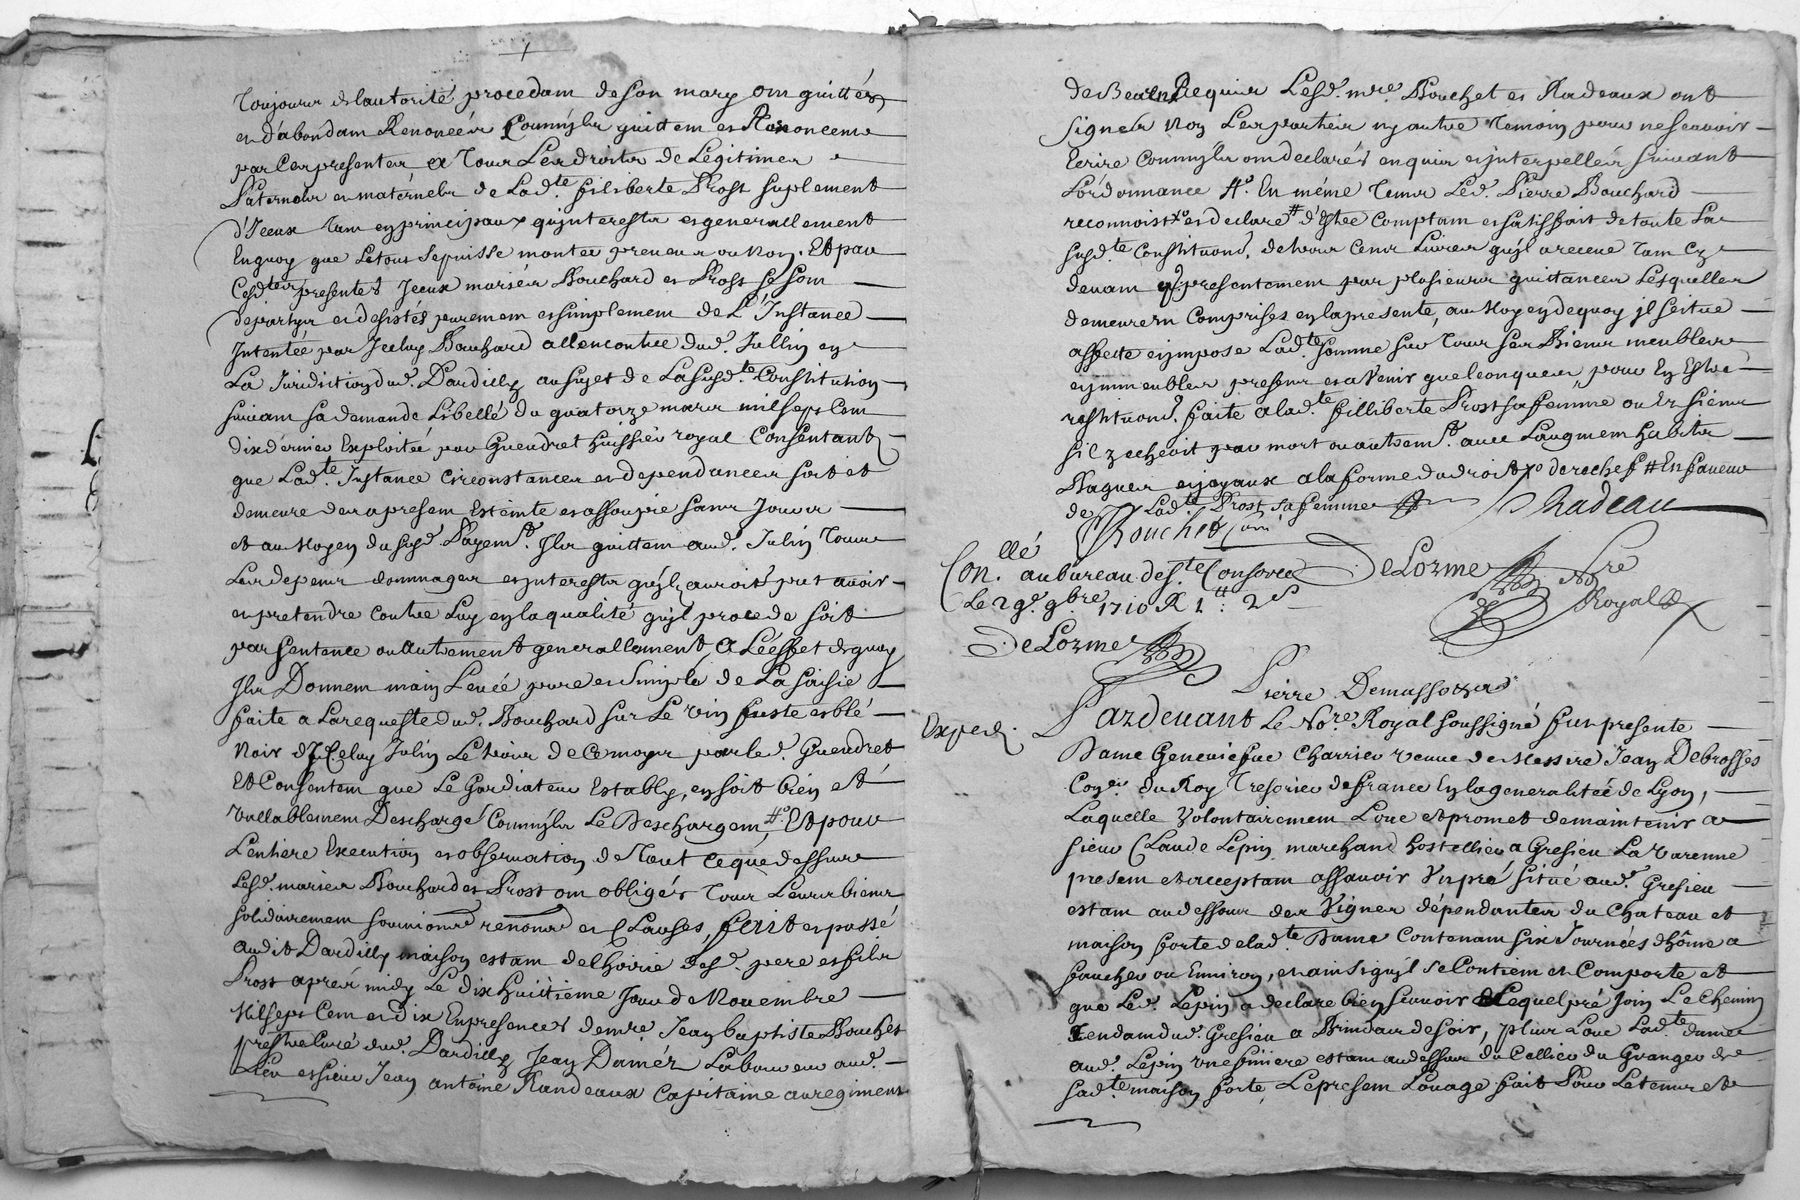 Toujours de lautorité procedam de son mary om quittés
et d'abondam Renoncéés Commjls quittem et Renoncems
par Ces presentes a Tous Les droits de Legitimes
Paternelr et maternels de Lad.te filiberte Prost suplement
d'Jceux Tam en principaux qujnterests et generallement
Enquoy que Letout sepuisse monter prendre ou Non. Et par
Cesd.tes presentes Jceux mariés Bouchard et Prost se som
departys et desistés purement et simplement de L'Instance
Jntentée par Jceluy Bouchard allencontre dud. Jullin en
La Juridiction dud. Dardilly au sujet de La susd.te Constitution
suivam sa demande Libellé du quatorze mars mil sept Cem
dix dernier Exploitée par Gueudret huissier royal Consentant
que Lad.te Instance Circonstances et dependances soit et
demeure des a presem Esteinte et assoupie sans Jouir
et au Moyen du susd. Payem.t Jls quittem aud. Julin Tous
Les depens dommages et jnterests qujls auroit put avoir
et pretendre contre Luy en la qualité qujl procede soit
par sentence ou Autrement generallement, A Léeffet dequoy
Jls Donnem main Levée pure et Simple de La saisie
faite a La requeste dud. Bouchard sur Le vin fuste et blé
Noir d'Jceluy Julin Le huir de Ce moyr par led. Gueudret
Et Consentem que Le Gardiateur Estably, en soit bien et
Vallablement Deschargé Commjls Le Deschargem, #° Et pour
L'entiere Execution et observation de Tout Ceque dessus
Lesd. mariés Bouchard et Prost om obligés Tous Leurs biens
solidairemem soumions renons et Clauses, fait et passé
audit Dardilly maison estam de L'hoirie desd. pere et fils
Prost aprés midy Le dix huitieme Jour de Novembre
Mil sept Cem et dix En presences de mre. Jean baptiste Bouchet
prestre Curé dud. Dardilly Jean Daméz Laboureur aud.
Lieu et sieur Jean antoine Randeaux Capitaine au regiment
de Beau Requis Lesd. mre. Bouchet et Radeaux ont
signés Non Les parties nj autre Temoin pour ne scavoir
Ecrire Commjls om declarés enquis et jnterpellés suivant
L'ordonnance #° En méme Tems Led. Pierre Bouchard
reconnoist x° et declare # d'Estre Comptam et satisfait de toute La
susd.te Constituon, de trois Cems Livres qujl a receue Tam Cy
devam q? presentement par plusieurs quittances Lesquelles
demeurerr Comprises en la presente, au Moyen dequoy jl scitue
affecte et jmpose Lad.te somme sur Tous ses Biens meubles
et jmmeubles presens et a Venir quelconques pour En Estre
restituons. faite a lad.te filliberte Prost sa femme ou Es siens
sil y echeoit par mort ou autrem.t avec Laugment habits
Bagues et joyaux a la forme du droit x° de rechef # En faveur
de Lad.te Prost sa femme
Bouchet curé Radeau
Con.llé au bureau de s.te Consorce DeLorme N.re
Le 29.e 9.bre 1710 R 1# : 2s Royal
DeLorme
Pierre Demussorzes
Expedi. Pardevant Le No.re Royal soussigné fut presente
Dame Geneviefve Charrier veuve de Messire Jean Debrosses
Con.er du Roy Tresorier de france En la generalitée de Lyon,
Laquelle Volontairemem Loue et promet de maintenir a
sieur Claude Lépin marchand hostellier a Gresieu La Varenne
presem et acceptam assavoir Vn pré situé aud. Gresieu
estam au dessous des Vignes dépendantes du Chateau et
maison forte de lad.te Dame Contenam six Journées d'hôme a
faucher ou Environ, et ainsi qujl se Contiem et Comporte et
que Led. Lepin a declare bien scavoir Lequel pré Join Le Chemin
Tendam dud. Gresieu a Brindas de soir, plus Loue Lad.te dame
aud. Lepin vne finiere estam au dessus du Cellier du Granger de
sad.te maison forte, Le presem Louage fait Pour Le tems et